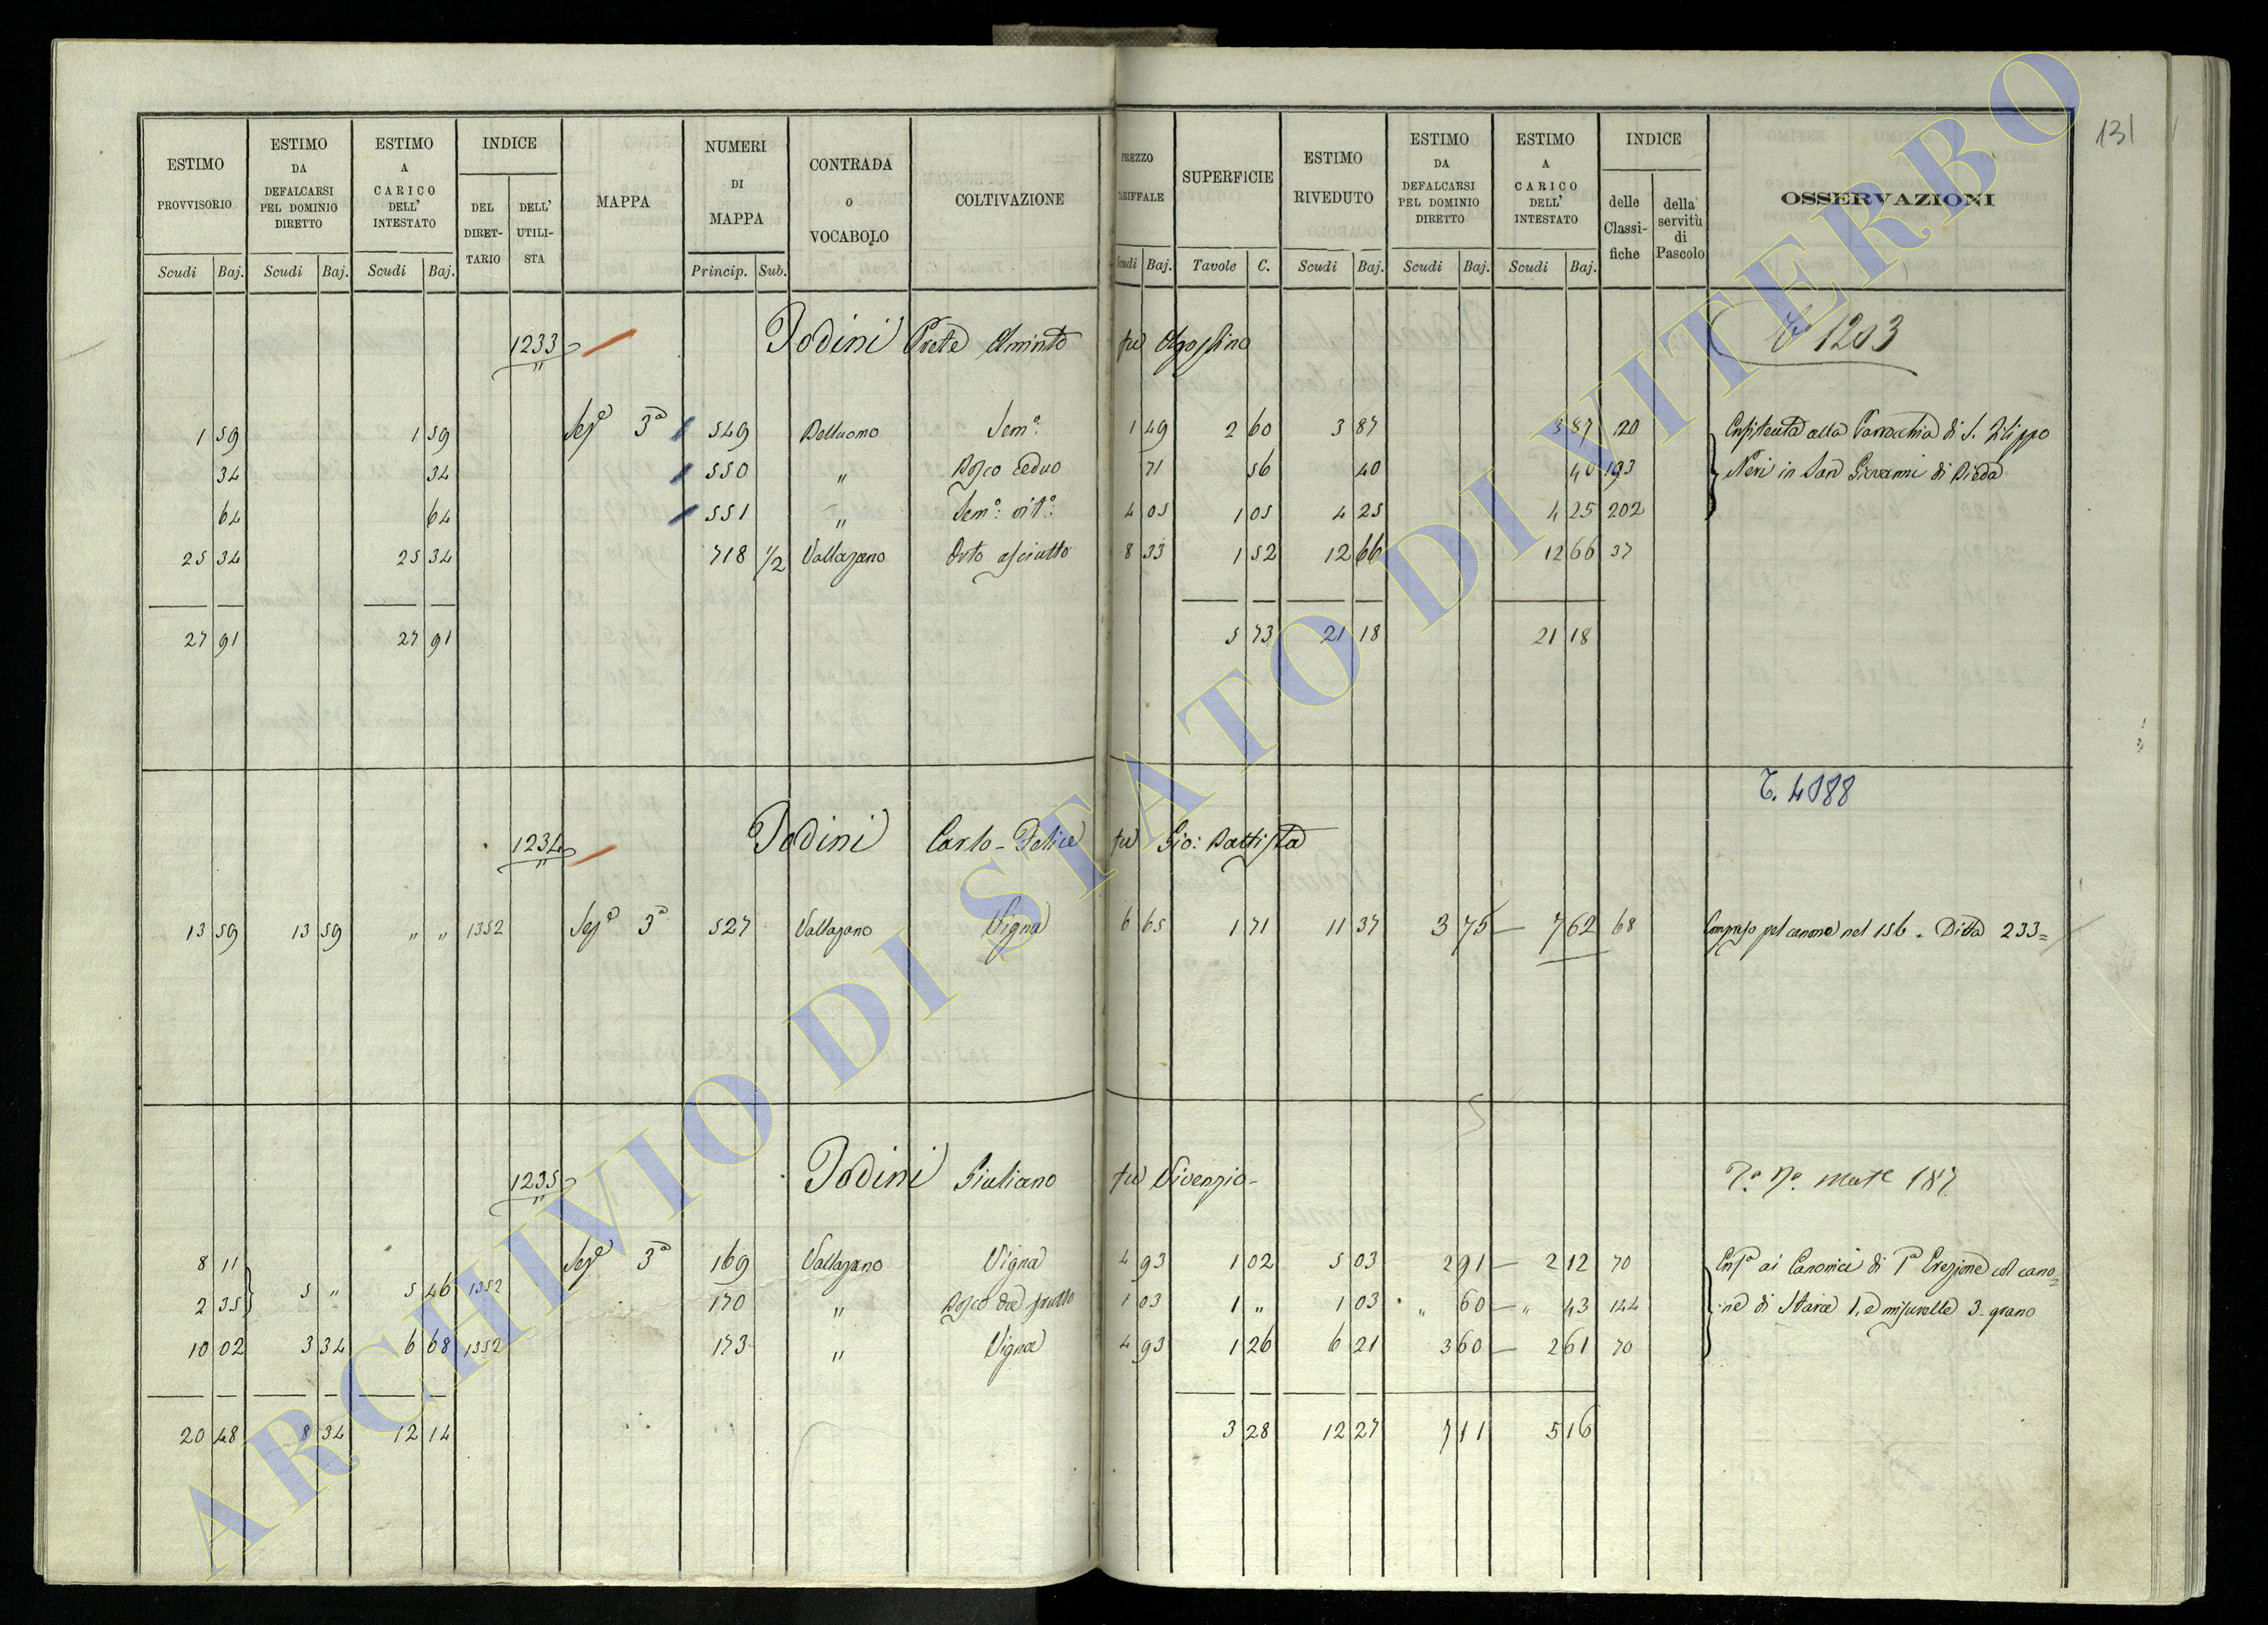 131
ESTIMO PROVVISORIO
ESTIMO DA DEFALCARSI PEL DOMINIO DIRETTO
ESTIMO A CARICO DELL' INTESTATO
INDICE
DEL DIRETTARIO
DELL' UTILISTA
MAPPA
NUMERI DI MAPPA
CONTRADA o VOCABOLO
COLTIVAZIONE
PREZZO TARIFFALE
SUPERFICIE
ESTIMO RIVEDUTO
ESTIMO DA DEFALCARSI PEL DOMINIO DIRETTO
ESTIMO A CARICO DELL' INTESTATO
INDICE
delle Classifiche
della servitù di Pascolo
OSSERVAZIONI
Scudi Baj. Scudi Baj. Scudi Baj. Princip. Sub. Scudi Baj. Tavole C. Scudi Baj. Scudi Baj. Scudi Baj.
1233 Jodini Prete Aminto fu Agostino 1203
1 59 1 59 Sez.e 3a 549 Belluomo Sem.o 1 49 2 60 3 87 3 87 120 Enfiteuta alla Parrocchia di S. Filippo
34 34 550 " Bosco ceduo 71 56 40 40 193 Neri in San Giovanni di Bieda
64 64 551 " Sem.o vit.o 4 05 1 05 4 25 4 25 202
25 34 25 34 718 1/2 Vallazano Orto asciutto 8 33 1 52 12 66 12 66 37
27 91 27 91 5 73 21 18 21 18
T. 4088
1234 Jodini Carlo-Felice fu Gio: Battista
13 59 13 59 " " 1352 Sez.e 3a 527 Vallazano Vigna 6 65 1 71 11 37 3 75 7 62 68 Compreso pel canone nel 156. Ditta 233=
1235 Jodini Giuliano fu Vivenzio
8 11 Sez.e 3a 169 Vallazano Vigna 4 93 1 02 5 03 2 91 2 12 70 Enf.a ai Canonici di 1a Erezione col cano=
5 " 5 46 1352
2 35 170 " Bosco da frutto 1 03 1 " 1 03 " 60 " 43 144 ne di Stara 1, e misurelle 3. grano
10 02 3 34 6 68 1352 173 " Vigna 4 93 1 26 6 21 3 60 2 61 70
20 48 8 34 12 14 3 28 12 27 7 11 5 16
ARCHIVIO DI STATO DI VITERBO